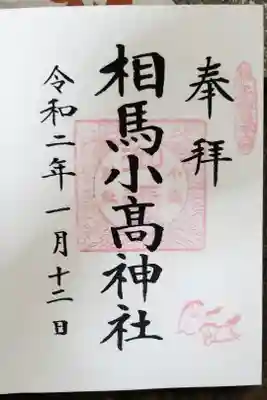 奉拝
相馬小髙神社
令和二年一月十二日